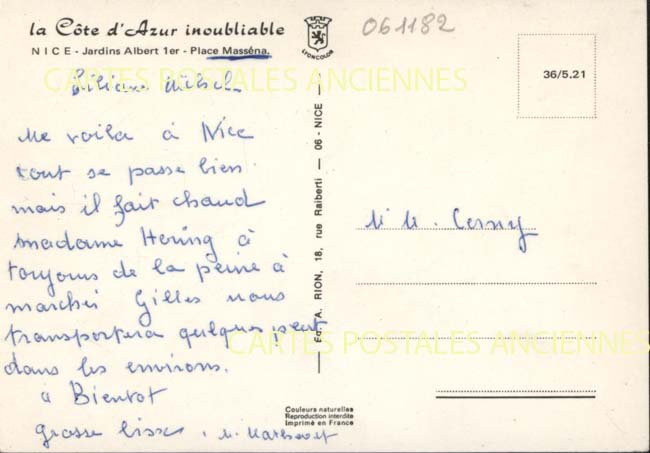 la Côte d'Azur inoubliable
NICE - Jardins Albert 1er - Place Masséna.
LYONCOLOR
061182
36/5.21
CARTES POSTALES ANCIENNES
Liliane
Me voila à Nice
tout se passe bien.
mais il fait chaud
madame Hering à
toujours de la peine à
marcher Gilles nous
transportera quelques peut
dans les environs.
à Bientot
grosse bises.
Ed. A. RION, 18, rue Raiberti — 06 - NICE —
M. M. Cerny
CARTES POSTALES ANCIENNES
Couleurs naturelles
Reproduction interdite
Imprimé en France